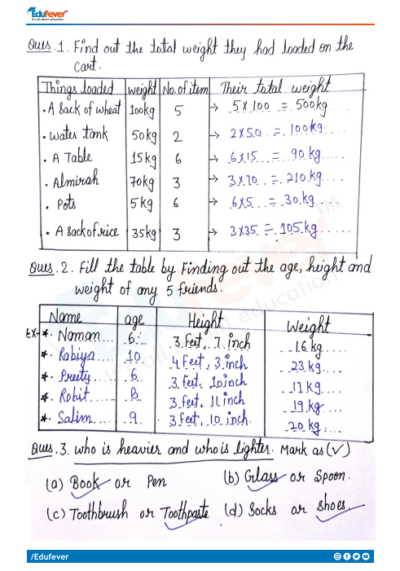 EduFever
Ques.1. Find out the total weight they had loaded on the
cart.
Things loaded weight No. of item Their total weight
. A Sack of wheat 100kg 5 → 5x100 = 500kg
. water tank 50kg 2 → 2x50 = 100kg
. A Table 15kg 6 → 6x15 = 90 kg
. Almirah 70kg 3 → 3x70 = 210kg
. Pots 5kg 6 → 6x5 = 30kg
. A Sack of rice 35kg 3 → 3x35 = 105kg
Ques.2. Fill the table by Finding out the age, height and
weight of any 5 friends.
Name age Height Weight
Ex-*. Naman 6 3 Feet, 7 inch 16 kg
*. Rabiya 10 4 Feet, 3 inch 23 kg
*. Preety 6 3 feet, 10 inch 17 kg
*. Rohit 8 3 feet, 11 inch 19 kg
*. Salim 9 3 feet, 10 inch 20 kg
Ques.3. Who is heavier and who is lighter. Mark as (√)
(a) Book or Pen (b) Glass or Spoon.
(c) Toothbrush or Toothpaste (d) Socks or Shoes.
/Edufever